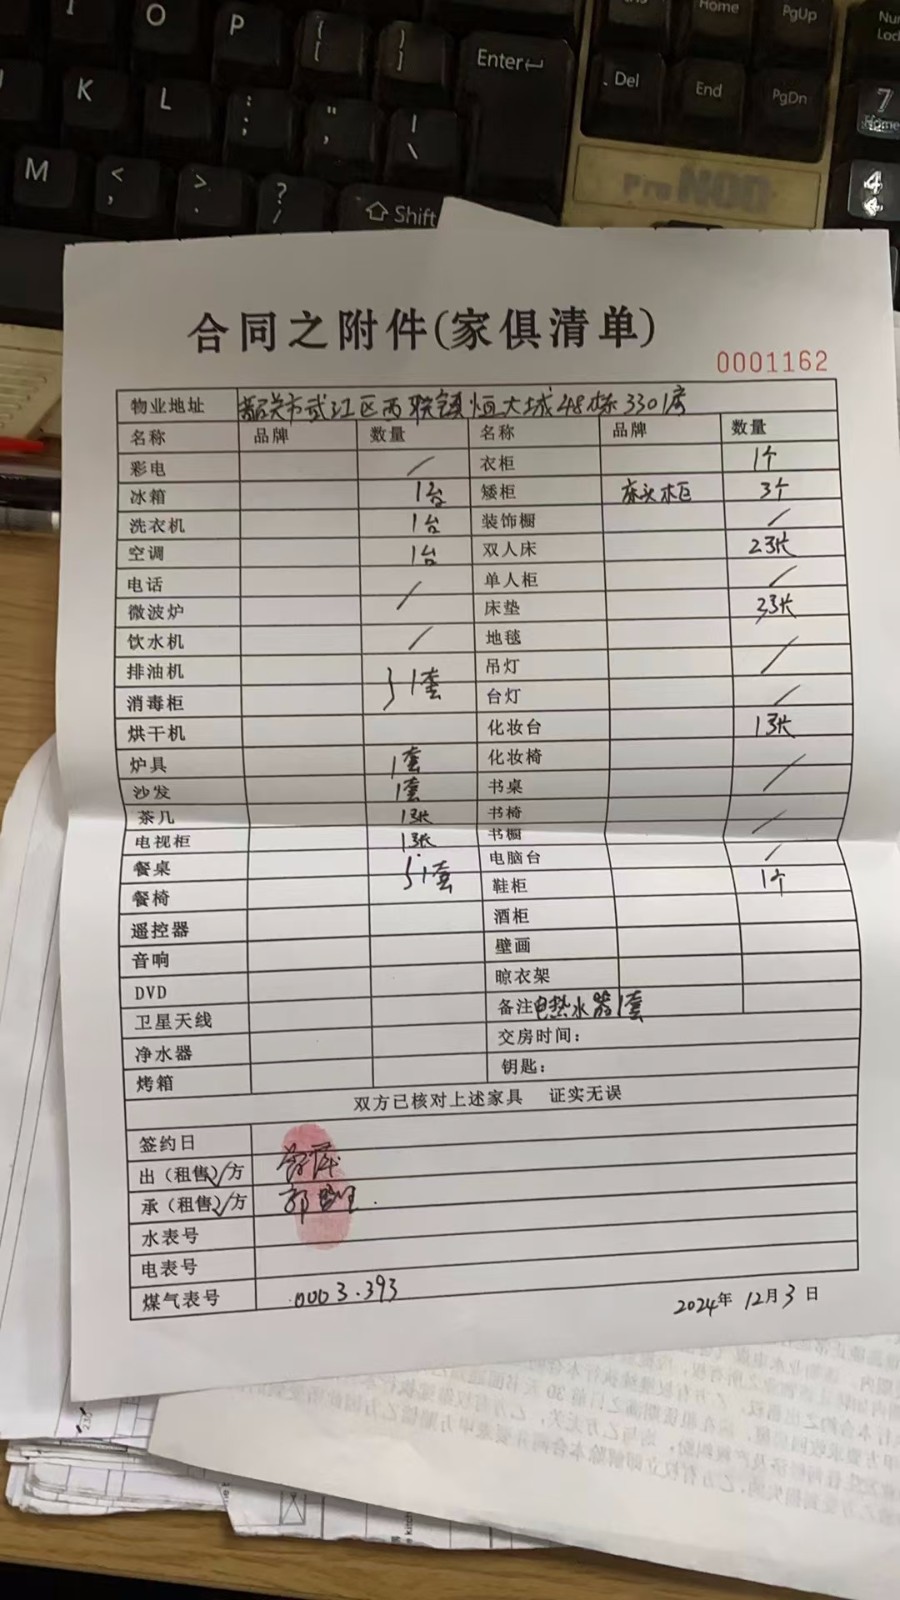 O P { [ } ] Enter Home PgUp Num Lock
K L : ; " , | \ Del End PgDn 7 Home
M < , > . ? / Shift 4
合同之附件(家俱清单)
0001162
物业地址 韶关市武江区西联镇恒大城48栋3301房
名称 品牌 数量 名称 品牌 数量
彩电 / 衣柜 1个
冰箱 1台 矮柜 床头柜 3个
洗衣机 1台 装饰橱 /
空调 1台 双人床 2张
电话 / 单人柜 /
微波炉 床垫 3张
饮水机 / 地毯 /
排油机 } 1套 吊灯
消毒柜 台灯 /
烘干机 化妆台 1张
炉具 1套 化妆椅 /
沙发 1套 书桌
茶几 1张 书椅 /
电视柜 1张 书橱
餐桌 } 1套 电脑台 /
餐椅 鞋柜 1个
遥控器 酒柜
音响 壁画
DVD 晾衣架
卫星天线 备注 电热水器1套
净水器 交房时间：
烤箱 钥匙：
双方已核对上述家具 证实无误
签约日
出（租售）√方
承（租售）√方
水表号
电表号
煤气表号 0003.393
2024年12月3日